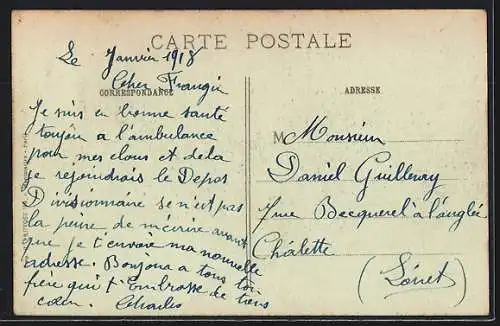 CARTE POSTALE
Le Janvier 1918
Cher Frangin
CORRESPONDANCE
ADRESSE
Je suis en bonne santé
toujou a l'ambulance
pour mes clous et de la
je rejoindrais le Depos
Divisionnaire se n'est pas
la peine de m'écrire avant
que je t'envoie ma nouvelle
adresse. Bonjour a tous ton
frère qui t'Embrasse de tiens
coeur. Charles
M Monsieur
Daniel Guillemay
7 rue Becquerel à l'anglée
Châlette
(Loiret)